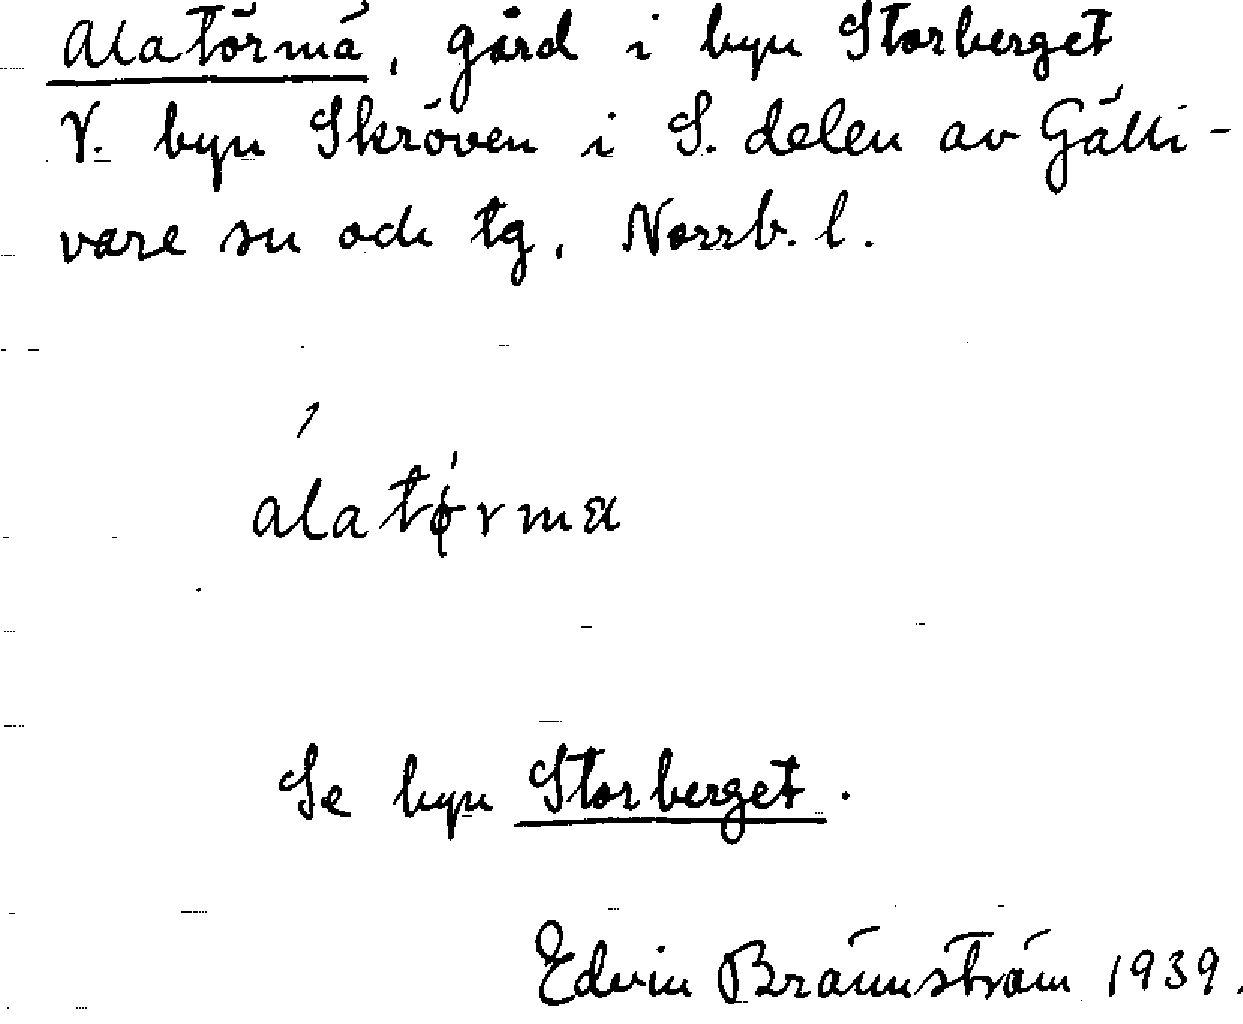 Alatörmä, gård i byn Storberget
V. byn Skröven i S. delen av Gälli-
vare sn och tg, Norrb. l.
álatǿrmα
Se byn Storberget.
Edvin Brännström 1939.